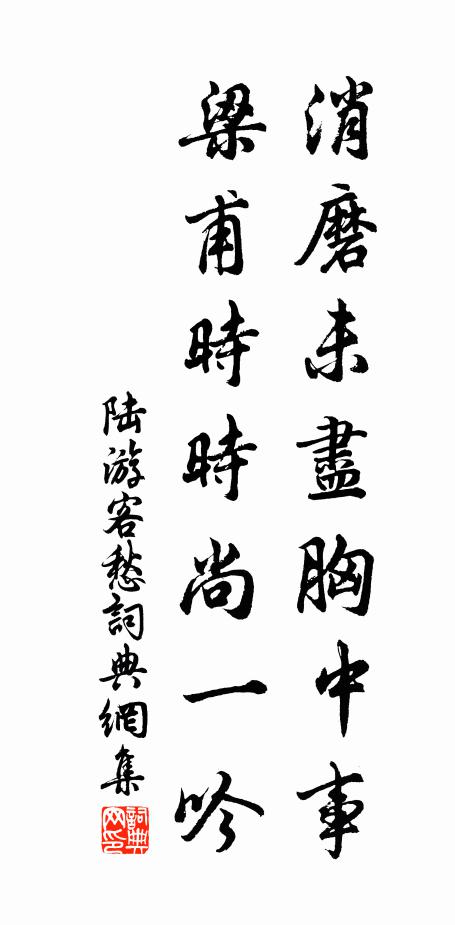 消磨未盡胸中事
梁甫時時尚一吟
陆游客愁詞典網集
詞典网印